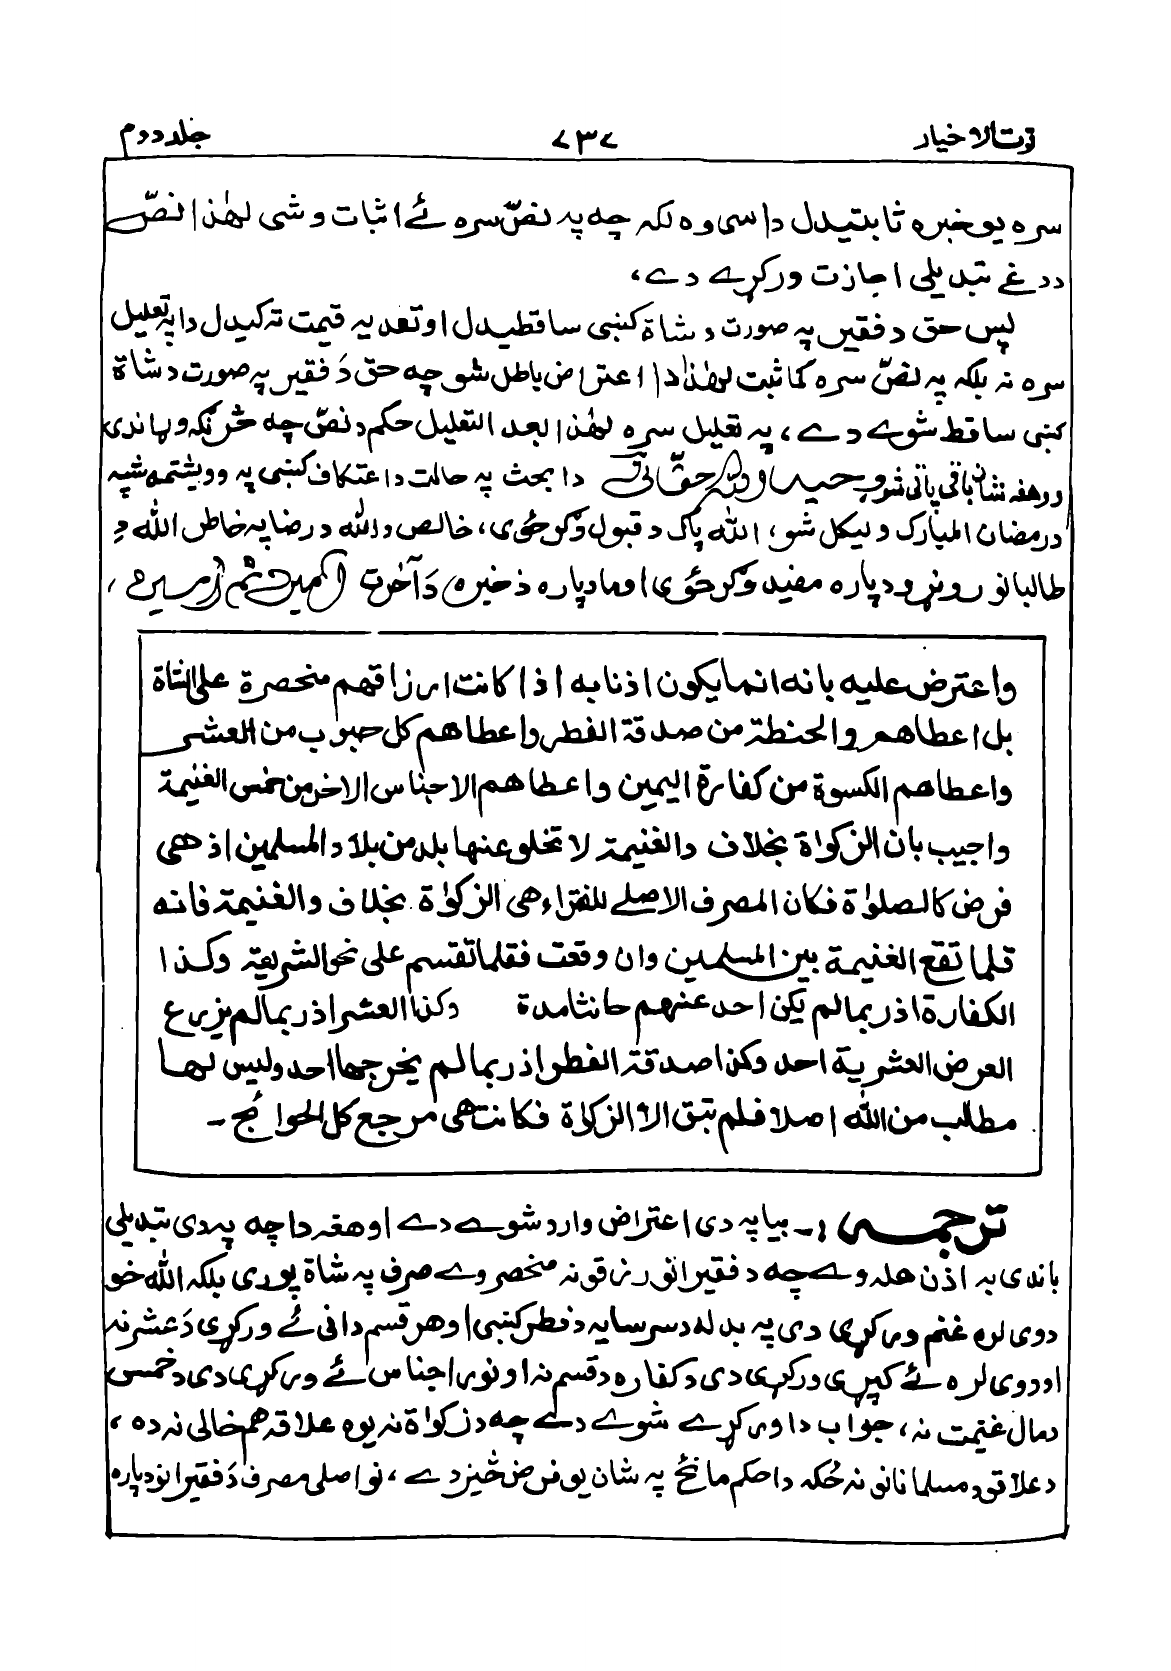 قوت الاخیار ۷۳۷ جلد دوم
سره یو خبره ثابتیدل داسی وه لکه چه په نصّ سره ئے اثبات وشی لهٰذا نصّ
د دغے تبدیلی اجازت ورکړے دے،
پس حق د فقیر په صورت د شاة کښی ساقطیدل او تعدیه قیمت ته کیدل دا په تعلیل
سره نه بلکه په نصّ سره کما ثبت لهٰذا دا اعتراض باطل شو چه حق دَ فقیر په صورت د شاة
کښی ساقط شوے دے، په تعلیل سره لهٰذا بعد التعلیل حکم د نصّ چه څرنګه وړاندی
ورهغه شان باقی پاتی شو، حیدا والله حقانی دا بحث په حالت د اعتکاف کښی په وویشتمه شپه
د رمضان المبارک ولیکل شو، الله پاک د قبول وګرځوی، خالص والله د رضا په خاطر الله دِ
طالبانو روڼو دپاره مفید وګرځوی او ما دپاره ذخیره دَ آخرت آمین ثم آمین،
واعترض علیه بانه انما یکون اذنا به اذا کانت ارزاقهم منحصرة علی الشاة
بل اعطاهم والحنطة من صدقة الفطر واعطاهم کل حبوب من العشر
واعطاهم الکسوة من کفارة الیمین واعطاهم الاجناس الاخر من خمس الغنیمة
واجیب بان الزکوٰة بخلاف دالغنیمة لا تخلو عنها بلد من بلاد المسلمین اذ هی
فرض کالصلوٰة فکان المصرف الاصلے للفقراء هی الزکوٰة بخلاف والغنیمة فانه
قلما تقع الغنیمة بین المسلمین وان وقعت فقلما تقسم علی نحو الشریعة وکذا
الکفارة اذ ربما لم یکن احد عنهم حانثا مدة وکذا العشر اذ ربما لم یزرع
العرض العشریة احد وکذا صدقة الفطر اذ ربما لم یخرجها احد ولیس لها
مطالب من الله اصلا فلم تبق الا الزکوٰة فکانت هی مرجع کل الحوائج -
ترجمـــه :- بیا په دی اعتراض وارد شوے دے او هغه دا چه پدی تبدیلی
باندی به اذن هله وے چه د فقیرانو رزقونه منحصر وے صرف په شاة پوری بلکه الله خو
دوی لره غنم ورکړی دی په بدله د سرسایه د فطر کښی او هر قسم دانی ئے ورکړی دَ عشر نه
او دوی لره ئے کپړی ورکړی دی د کفاره د قسم نه او نور اجناس ئے ورکړی دی د خمس
د مال غنیمت نه، جواب دا ورکړے شوے دے چه د زکوٰة نه یوه علاقه هم خالی نه ده،
د علاقو د مسلمانانو نه ځکه دا حکم مانځه په شان یو فرض څیز دے، نو اصلی مصرف دَ فقیرانو دپاره